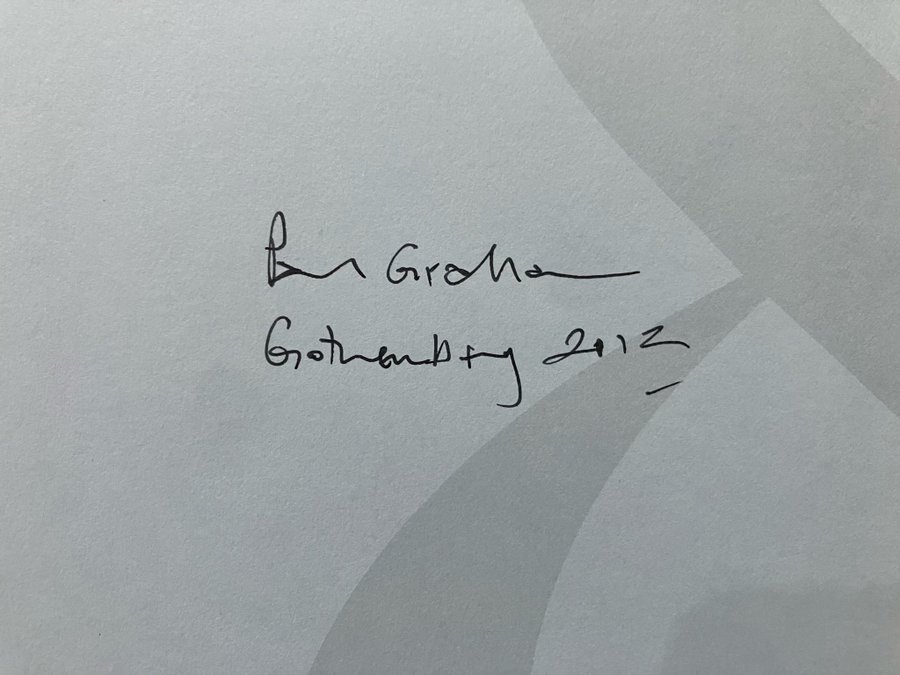 Paul Graham
Gothenburg 2012